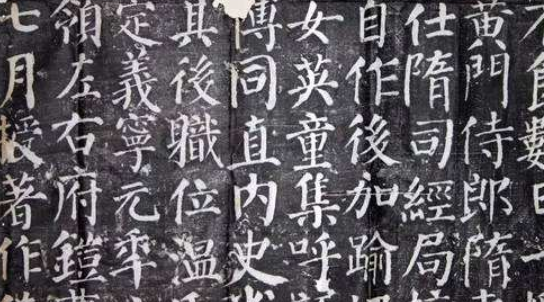 食數日
黃門侍郎隋
仕隋司經局
自作後加踰
女英童集呼
博同直内史
其後職位温
定義寧元年
領左右府鎧
七月授著作